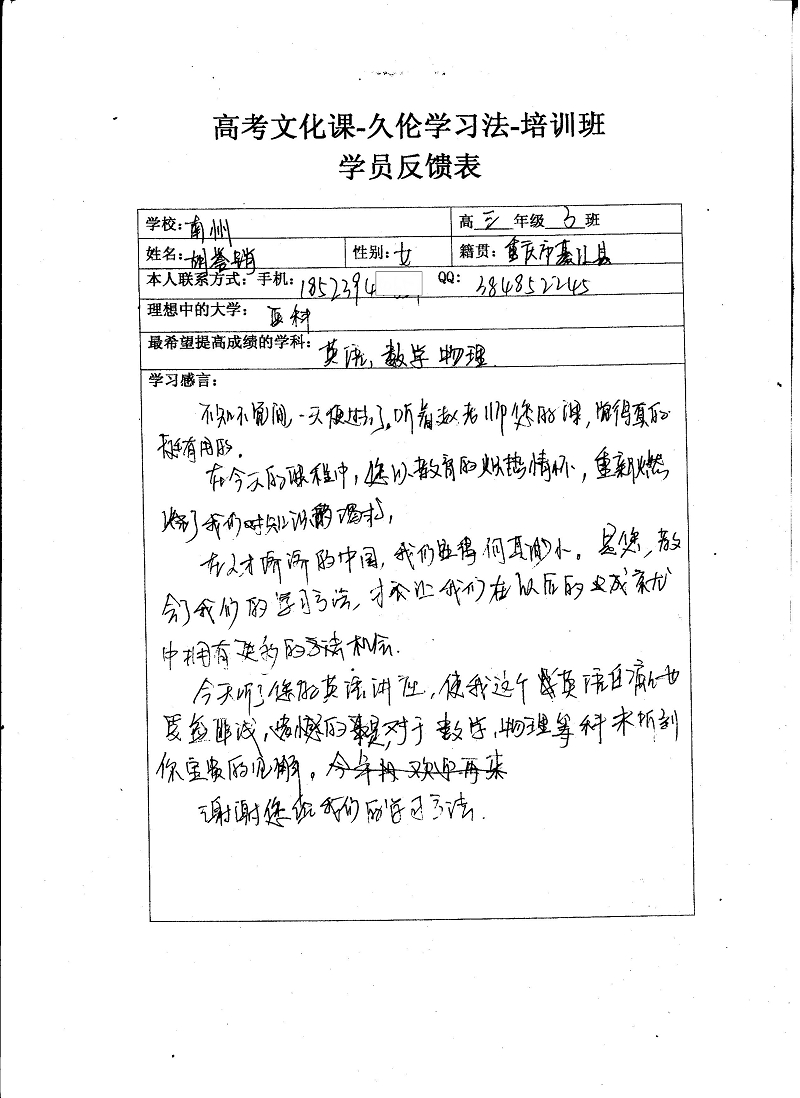 高考文化课-久伦学习法-培训班
学员反馈表
学校：南州 高 三 年级 3 班
姓名： 性别：女 籍贯：重庆市綦江县
本人联系方式：手机：1852394 QQ：384852245
理想中的大学：医科
最希望提高成绩的学科：英语，数学 物理
学习感言：
不知不觉间，一天便过去了，听着赵老师您的课，觉得真的
挺有用的。
在今天的课程中，您以教育的炽热情怀，重新燃
烧了我们对知识的渴求，
在人才济济的中国，我们显得何其渺小。是您，教
会了我们的学习方法，才会让我们在以后的
中拥有更多的方法机会.
今天听了您的英语讲座，使我这个英语白痴也
受益匪浅，遗憾的是，对于数学，物理等科未听到
你宝贵的见解。今年
谢谢您给我们的学习方法.